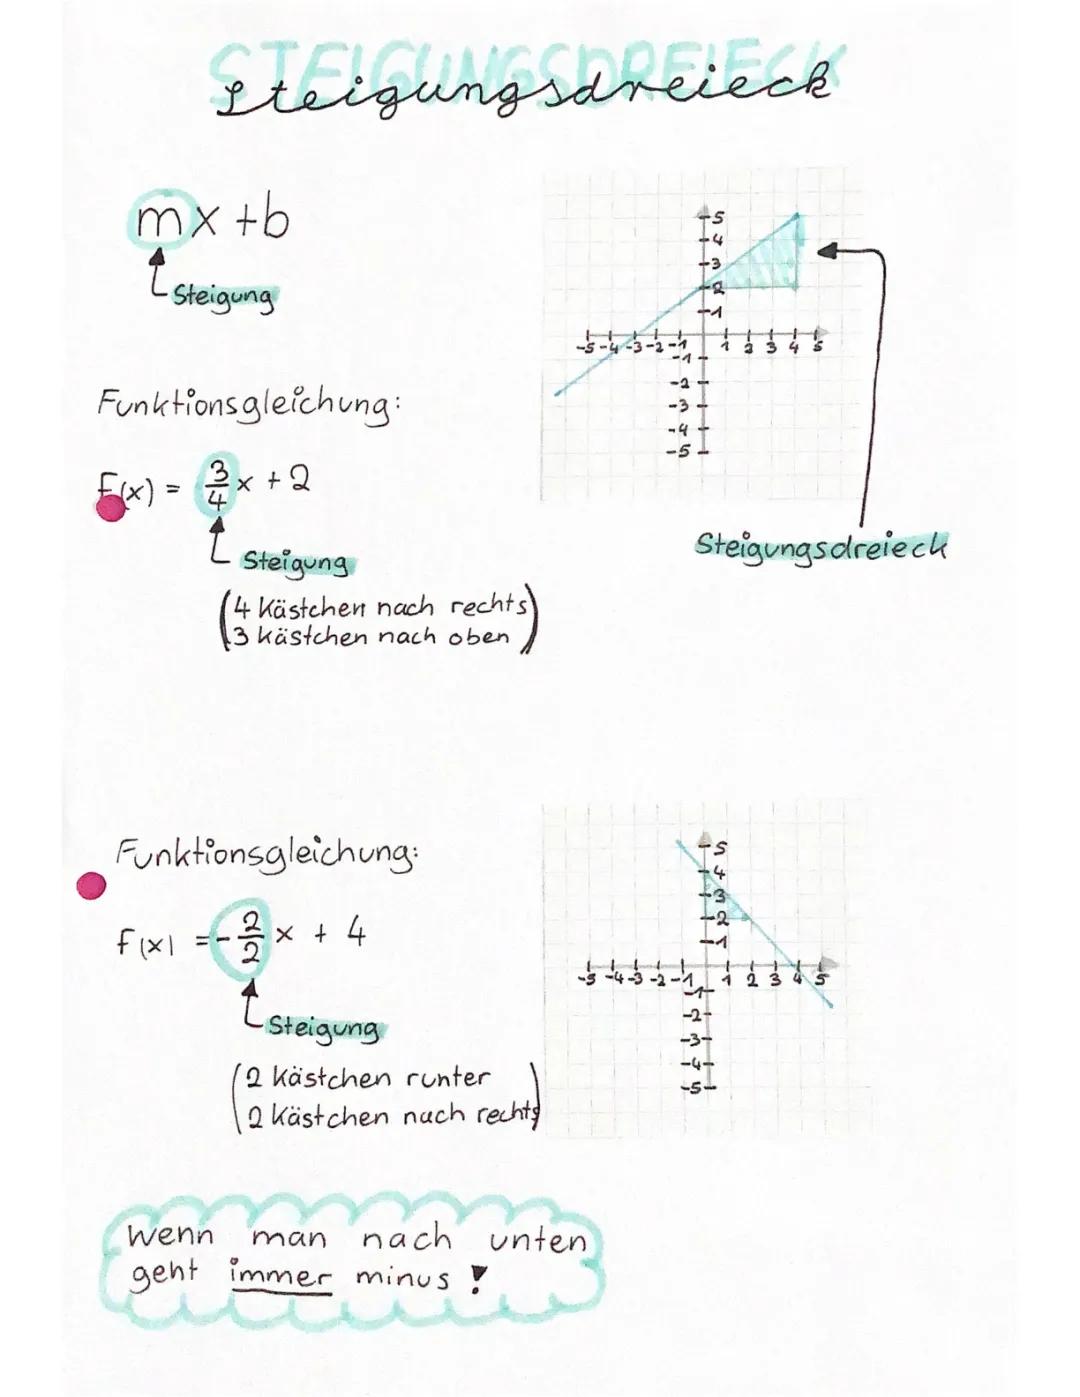 STEIGUNGSDREIECK
Steigungsdreieck
mx +b
Steigung
5
4
3
2
1
-5 -4 -3 -2 -1 1 2 3 4 5
-1
-2
-3
-4
-5
Steigungsdreieck
Funktionsgleichung:
f(x) = 3/4 x + 2
Steigung
(4 Kästchen nach rechts)
(3 kästchen nach oben)
Funktionsgleichung:
f(x) = - 2/2 x + 4
Steigung
(2 Kästchen runter)
(2 Kästchen nach rechts)
5
4
3
2
1
-5 -4 -3 -2 -1 1 2 3 4 5
-1
-2
-3
-4
-5
Wenn man nach unten
geht immer minus !